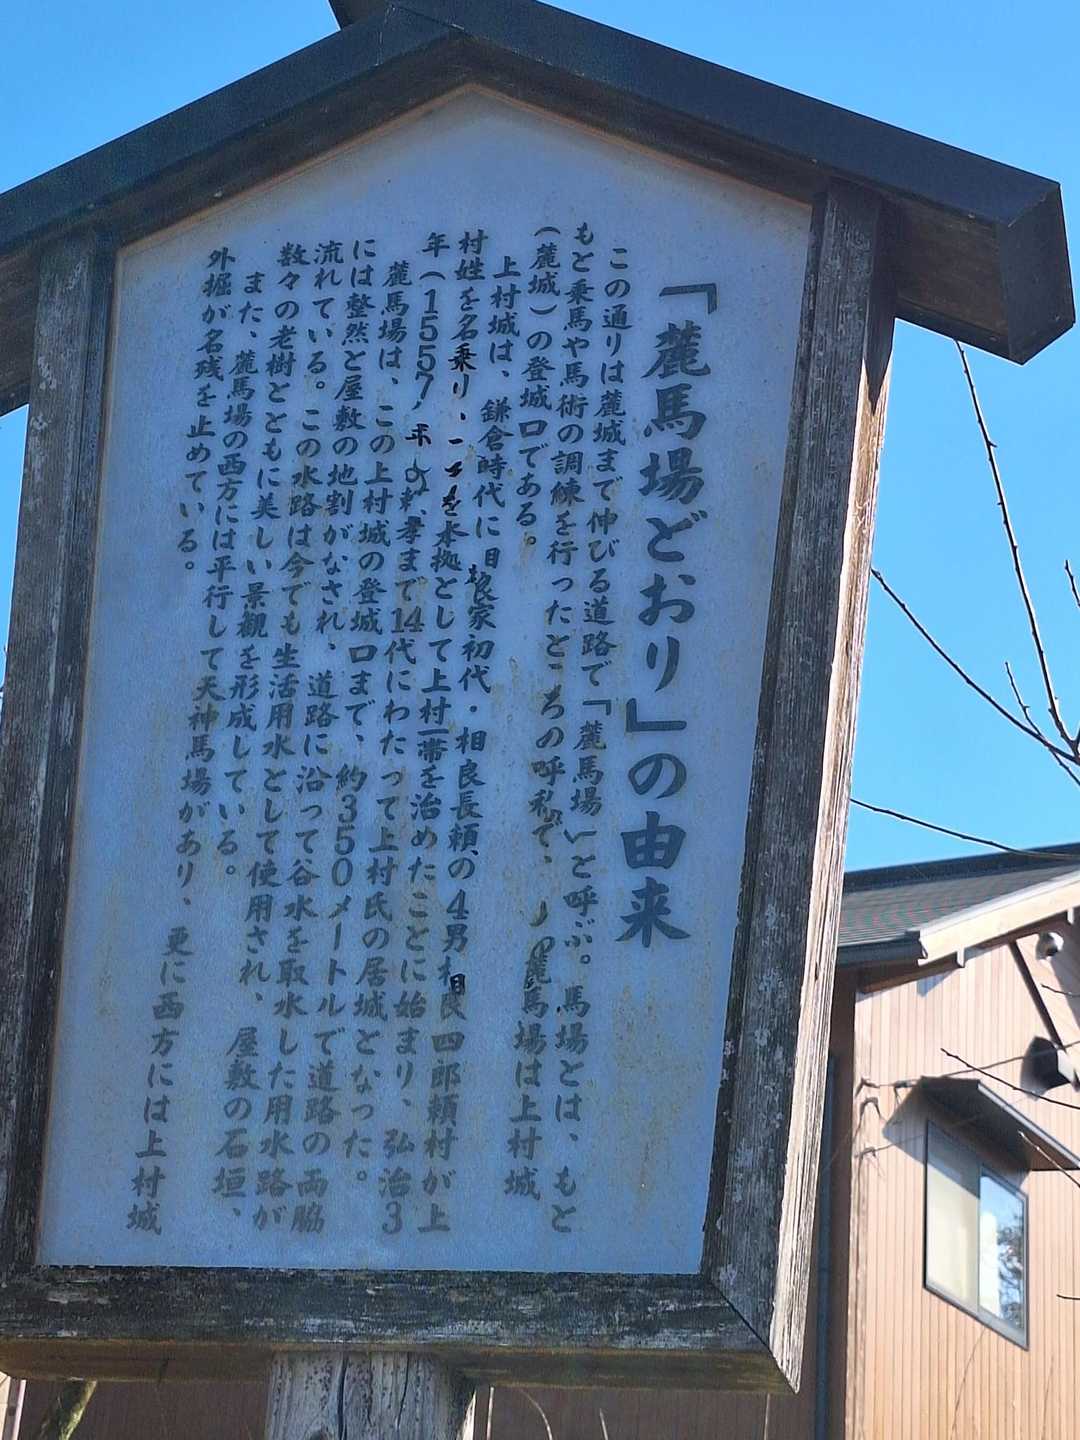 「麓馬場どおり」の由来
この通りは麓城まで伸びる道路で「麓馬場」と呼ぶ。馬場とは、もと
もと乗馬や馬術の調練を行ったところの呼称で、この麓馬場は上村城
（麓城）の登城口である。
上村城は、鎌倉時代に相良家初代・相良長頼の4男相良四郎頼村が上
村姓を名乗り、ここを本拠として上村一帯を治めたことに始まり、弘治3
年（1557）年の頼孝まで14代にわたって上村氏の居城となった。
麓馬場は、この上村城の登城口まで、約350メートルで道路の両脇
には整然と屋敷の地割がなされ、道路に沿って谷水を取水した用水路が
流れている。この水路は今でも生活用水として使用され、屋敷の石垣、
数々の老樹とともに美しい景観を形成している。
また、麓馬場の西方には平行して天神馬場があり、更に西方には上村城
外堀が名残を止めている。